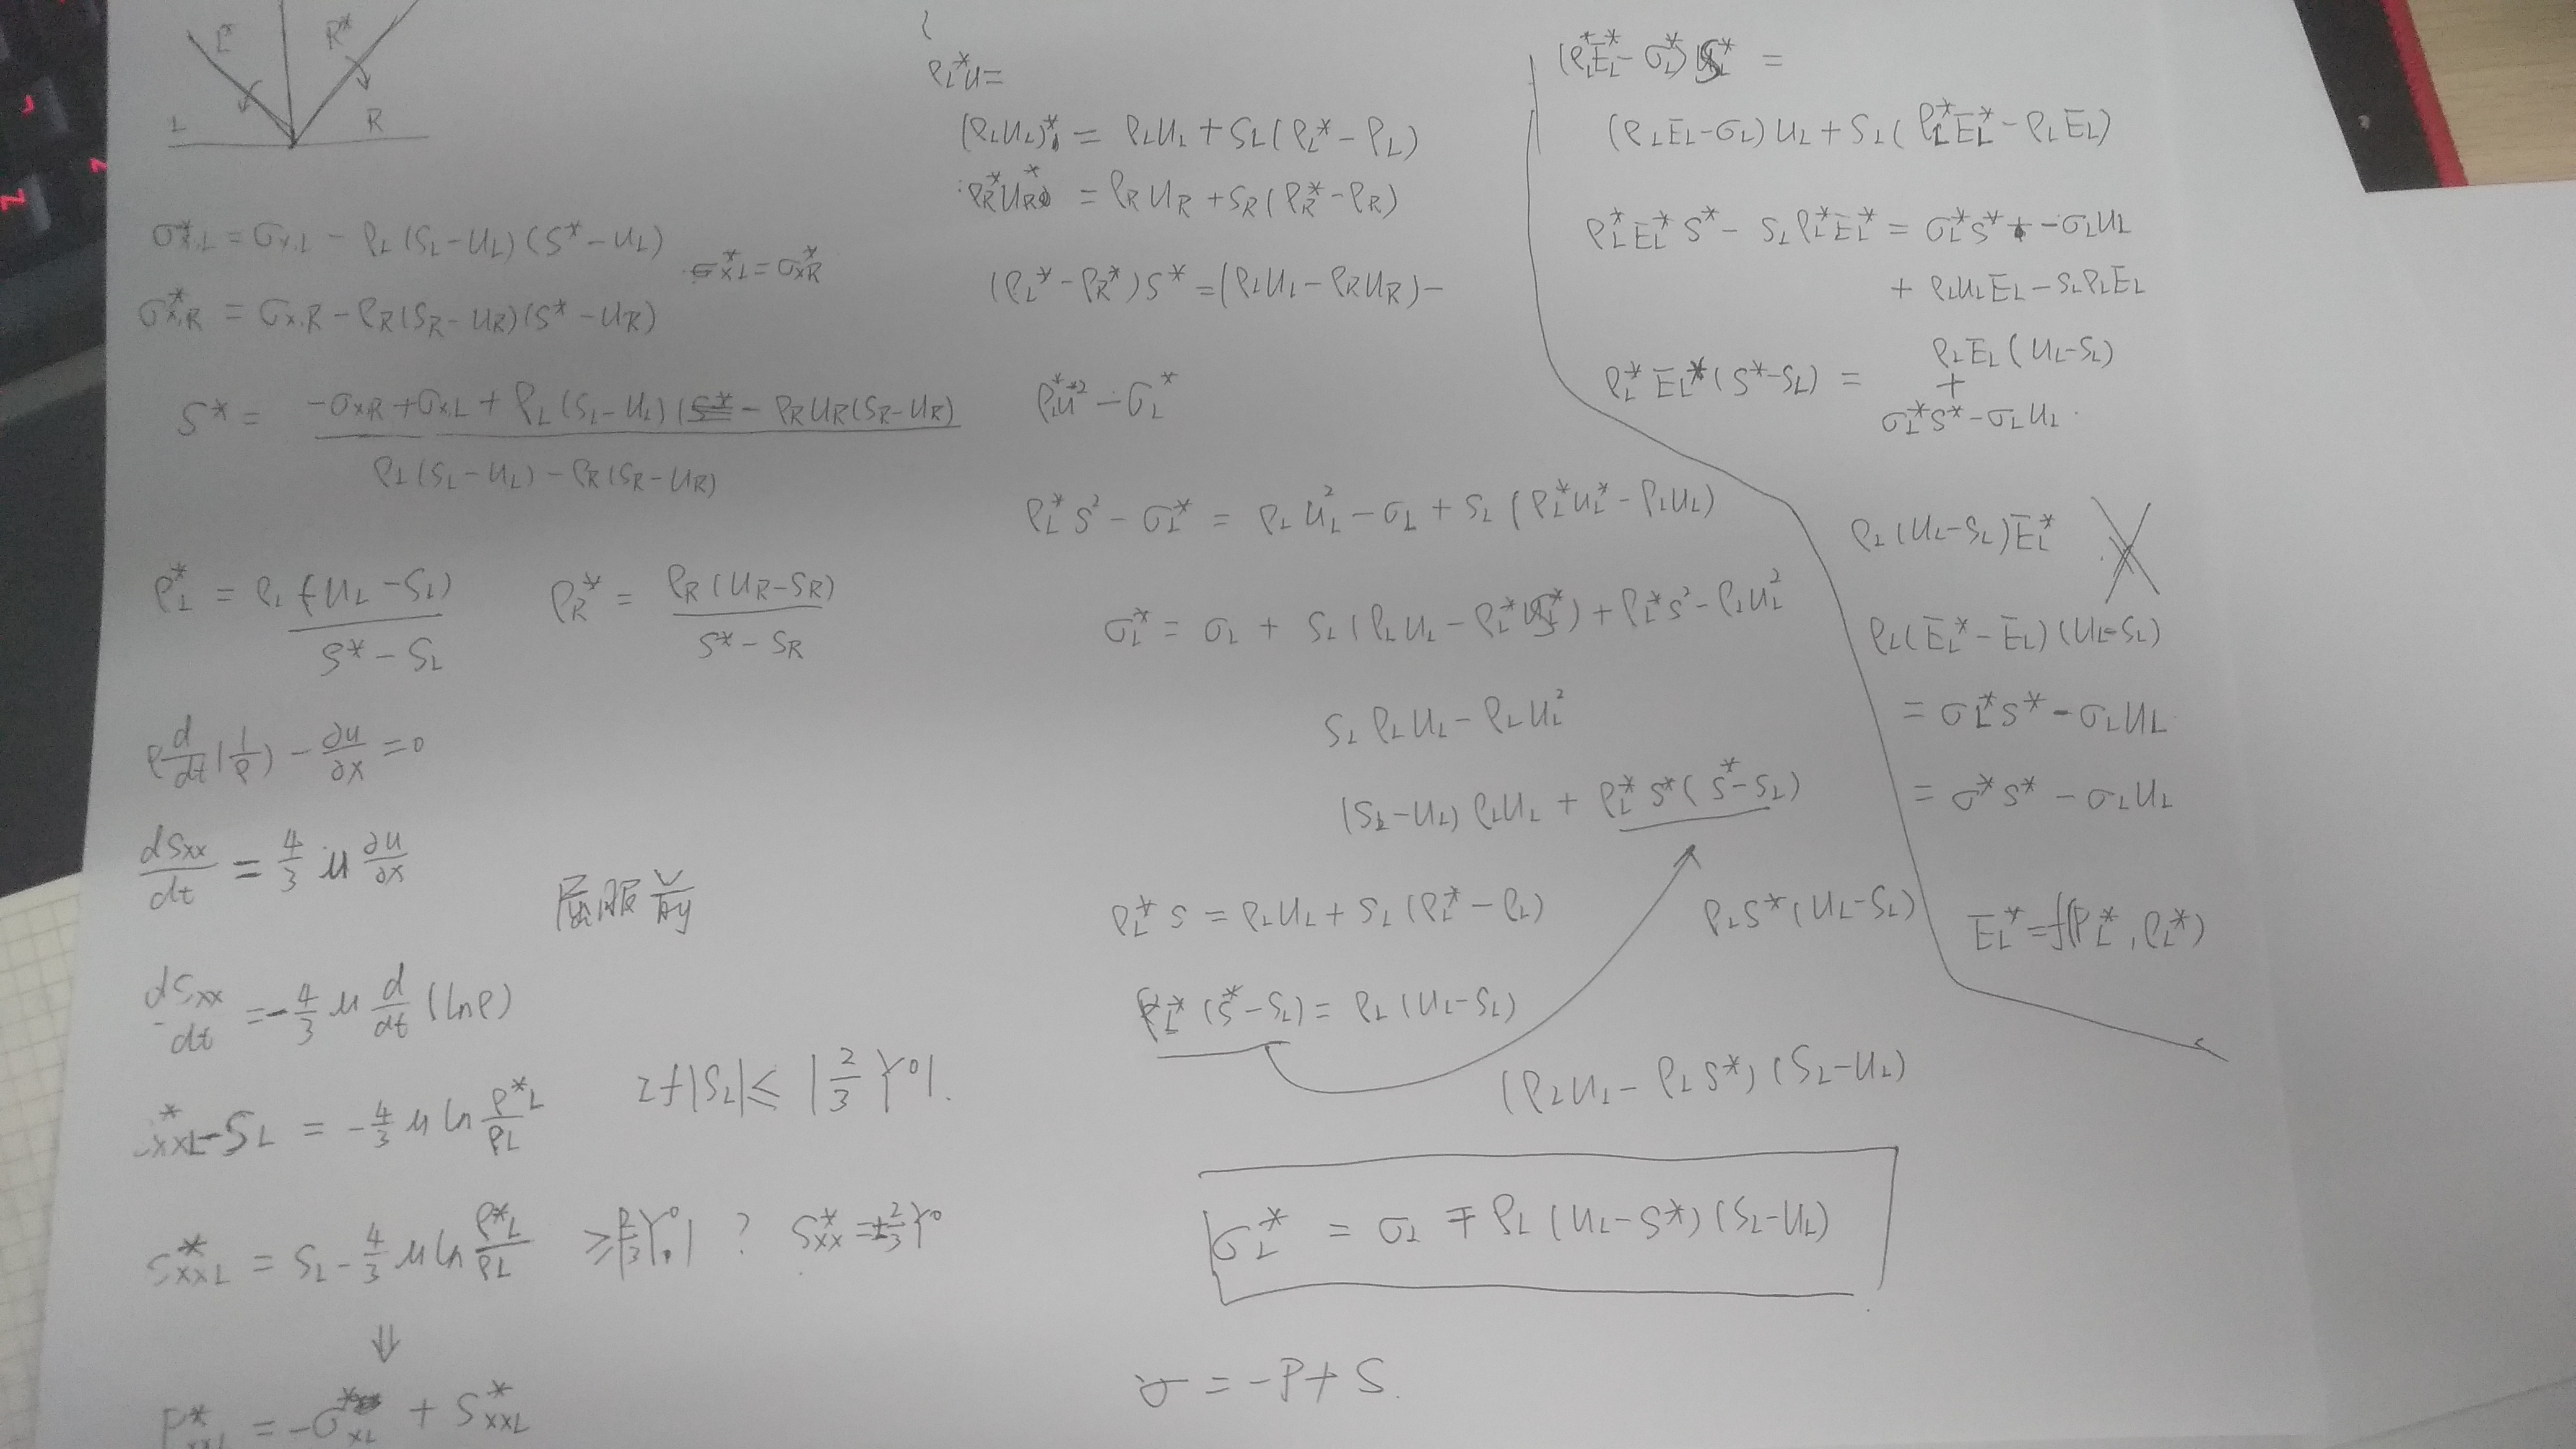 L* R*
L R
σ*x,L = σx,L − ρL(SL−uL)(S*−uL)
σ*xL = σ*xR
σ*x,R = σx,R − ρR(SR−uR)(S*−uR)
S* = (−σxR + σx,L + ρL(SL−uL)(S* − ρRuR(SR−uR)) / (ρL(SL−uL) − ρR(SR−uR))
ρL* = ρL(uL−SL) / (S*−SL)   ρR* = ρR(uR−SR) / (S*−SR)
ρ d/dt(1/ρ) − ∂u/∂x = 0
dSxx/dt = 4/3 μ ∂u/∂x
屈服前
dSxx/dt = −4/3 μ d/dt (lnρ)
*xxL − SL = −4/3 μ ln ρ*L/ρL   if |SL| ≤ |2/3 Y0|.
S*xxL = SL − 4/3 μ ln ρ*L/ρL ≥ |2/3 Y0| ? S*xx = ±2/3 Y0
⇓
P*xxL = −σ*xL + S*xxL
ρL*u =
(ρLuL)* = ρLuL + SL(ρL* − ρL)
ρR*uR* = ρRuR + SR(ρR* − ρR)
(ρL* − ρR*)S* = (ρLuL − ρRuR) −
ρL*u*² − σL*
ρL*S² − σL* = ρLuL² − σL + SL(ρL*uL* − ρLuL)
σL* = σL + SL(ρLuL − ρL*S*) + ρL*S² − ρLuL²
SLρLuL − ρLuL²
(SL−uL)ρLuL + ρL*S*(S*−SL)
ρL*S = ρLuL + SL(ρL* − ρL)
ρLS*(uL−SL)
ρL*(S*−SL) = ρL(uL−SL)
(ρLuL − ρLS*)(SL−uL)
σL* = σL ∓ ρL(uL−S*)(SL−uL)
σ = −P + S.
(ρL*EL* − σL*)S* =
(ρLEL−σL)uL + SL(ρL*EL* − ρLEL)
ρL*EL*S* − SLρL*EL* = σL*S* − σLuL
+ ρLuLEL − SLρLEL
ρL*EL*(S*−SL) = ρLEL(uL−SL)
+
σL*S* − σLuL.
ρL(uL−SL)EL*
ρL(EL*−EL)(uL−SL)
= σL*S* − σLuL
= σ*S* − σLuL
EL* = f(PL*, ρL*)